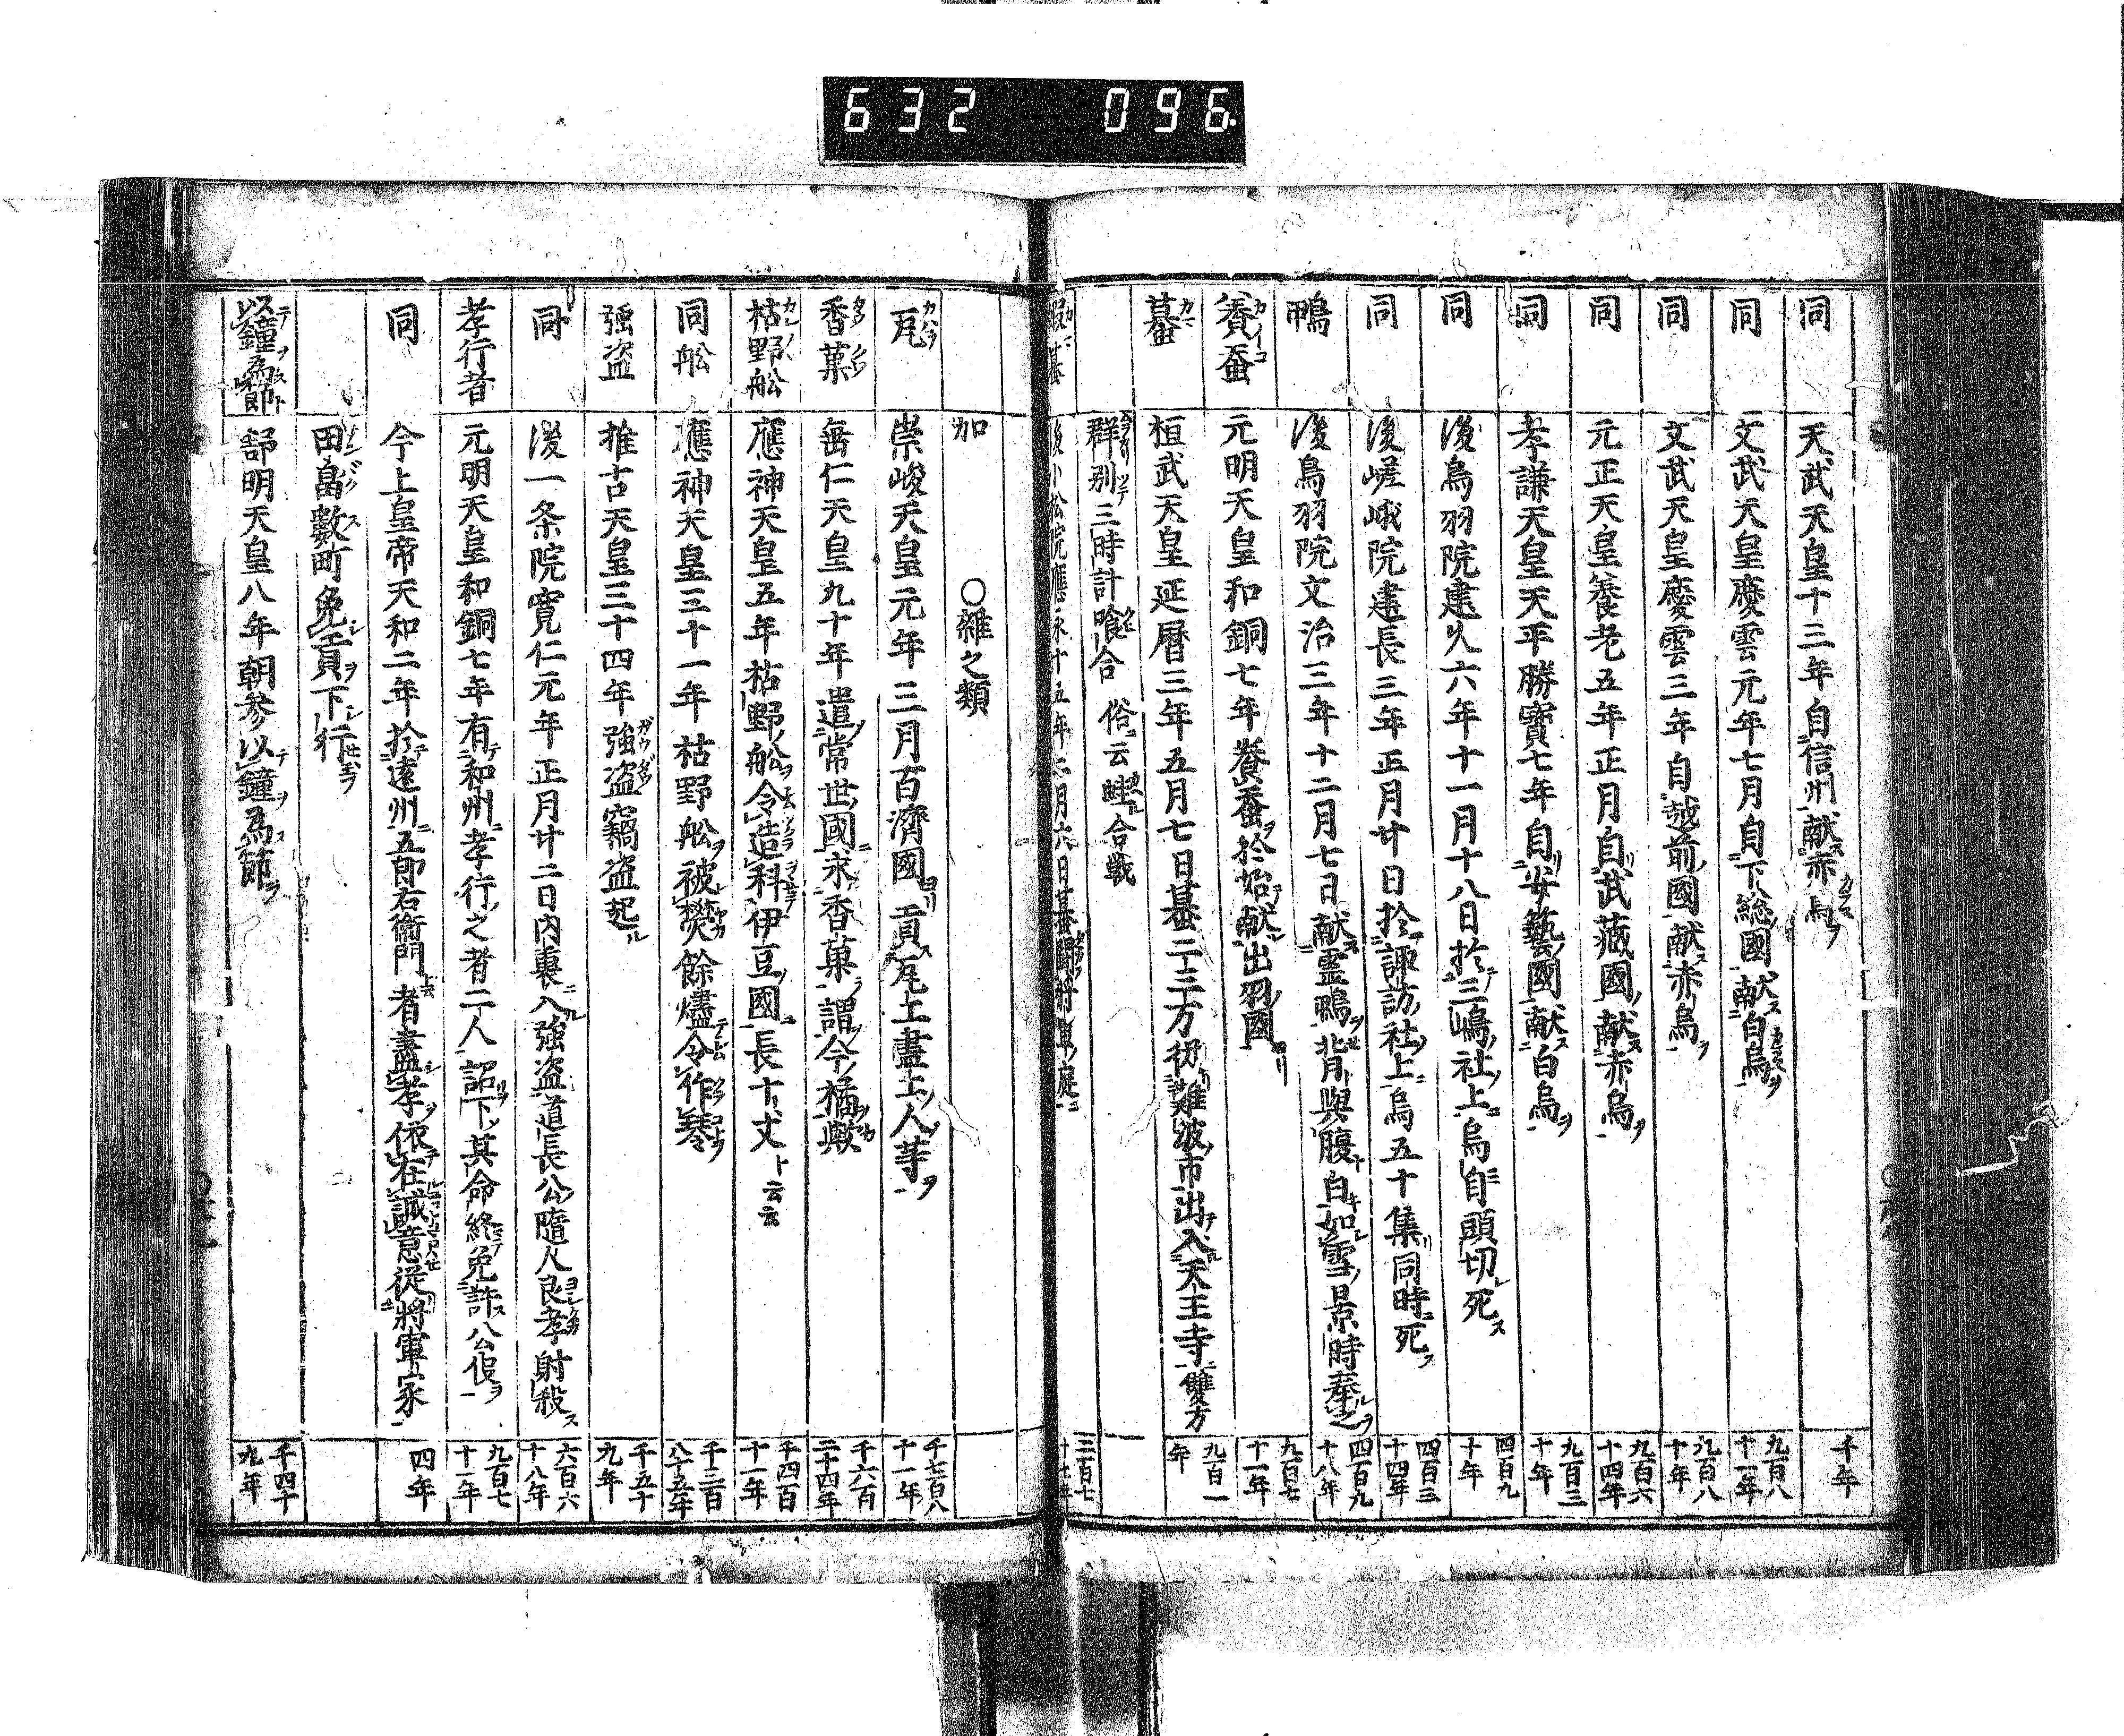 632 096
同 天武天皇十三年自信州献赤烏 千年
同 文武天皇慶雲元年七月自下総國献白烏 九百八十一年
同 文武天皇慶雲三年自越前國献赤烏 九百八十年
同 元正天皇養老五年正月自武蔵國献赤烏 九百六十四年
同 孝謙天皇天平勝寳七年自安藝國献白烏 九百三十年
同 後鳥羽院建久六年十一月十八日於三嶋社上烏自頭切死 四百九十年
同 後嵯峨院建長三年正月廿日於諏訪社上烏五十集同時死 四百三十四年
鴨 後鳥羽院文治三年十二月七日献霊鴨背與腹白如雪景時奉之 四百九十八年
養蚕 元明天皇和銅七年養蚕於始献出羽國 九百七十一年
蟇 桓武天皇延暦三年五月七日蟇二三万従難波市出入天王寺雙方 九百一年
群別三時計喰合 俗云蛙合戦
蝦蟇 後小松院應永十五年二月六日蟇蝦闘将軍庭 二百七十七年
加 〇雑之類
瓦 崇峻天皇元年三月百濟國貢瓦工畫工人等 千七百八十一年
香菓 垂仁天皇九十年遣常世國求香菓謂今橘歟 千六百二十四年
枯野舩 應神天皇五年枯野舩令造科伊豆國長十丈ト云云 千四百十一年
同舩 應神天皇三十一年枯野舩被焚餘燼令作琴 千三百八十五年
強盗 推古天皇三十四年強盗竊盗起 千五十九年
同 後一条院寛仁元年正月廿二日内裏入強盗道長公隨人良孝射殺 六百六十八年
孝行者 元明天皇和銅七年有和州孝行之者二人詔下其命終免許公役 九百七十一年
同 今上皇帝天和二年於遠州五郎右衛門者盡孝依在誠意従将軍家 四年
田畠數町免貢下行
以鐘為節 舒明天皇八年朝参以鐘為節 千四十九年